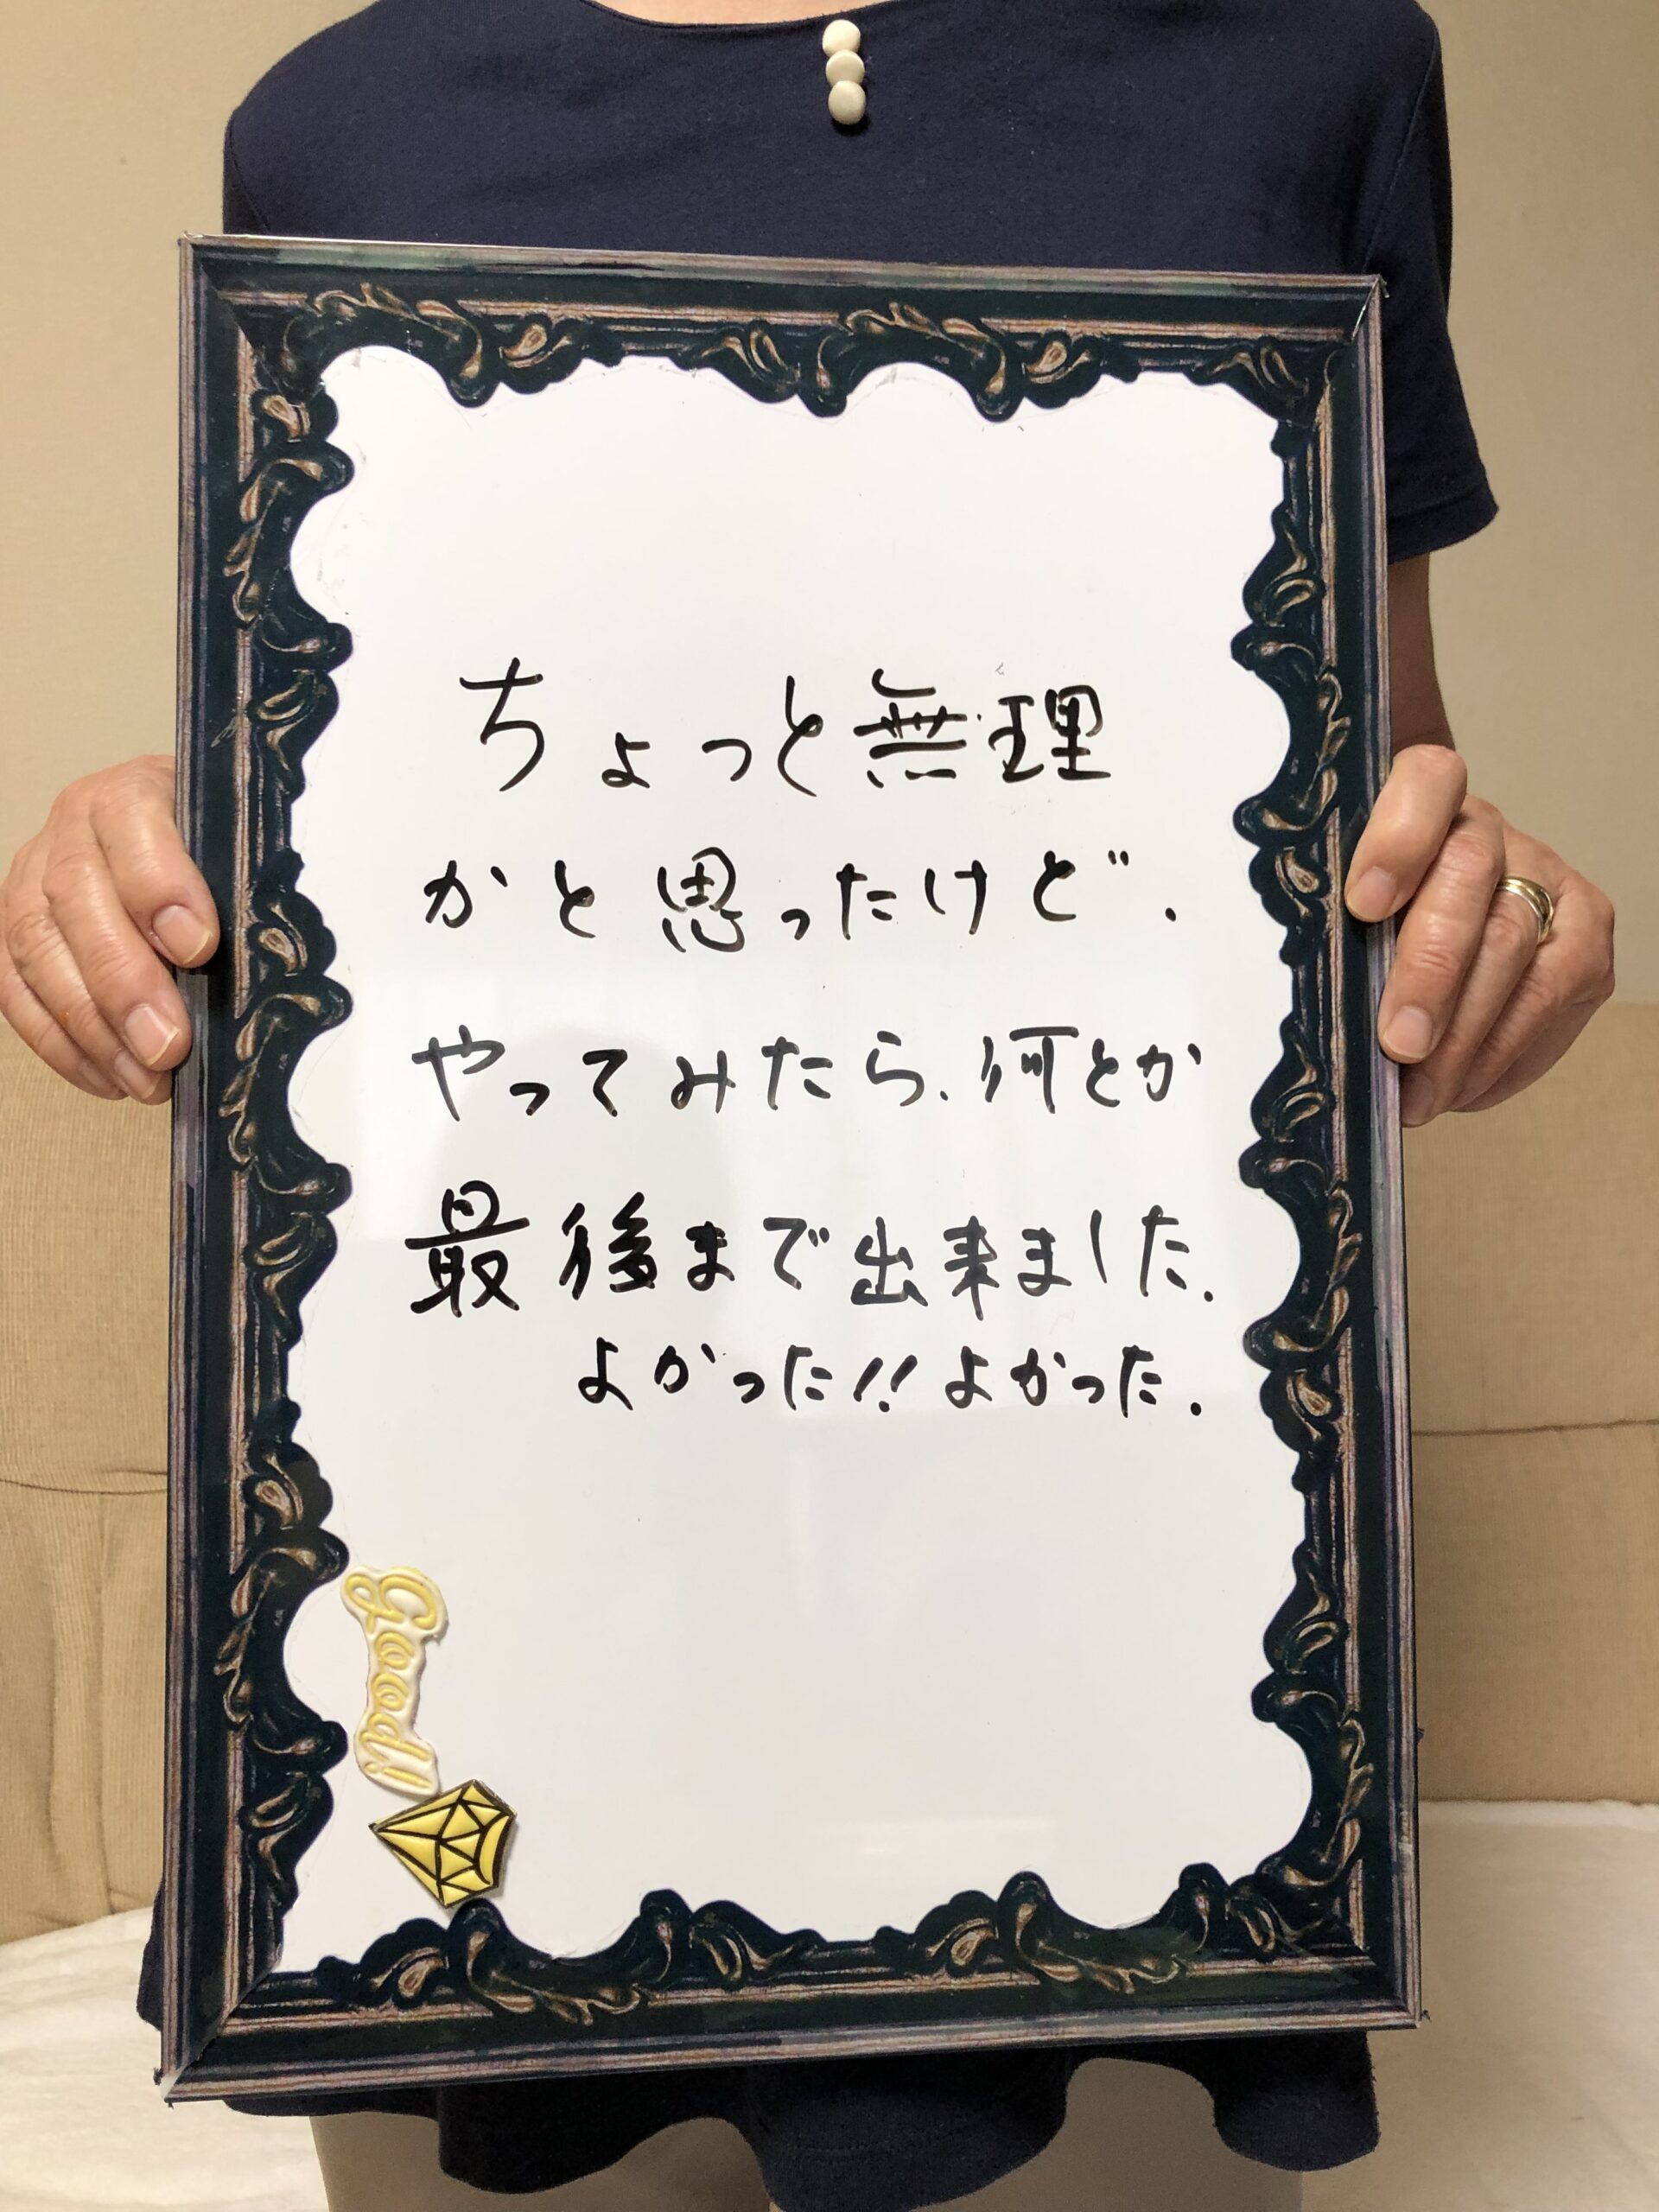 ちょっと無理
かと思ったけど.
やってみたら、何とか
最後まで出来ました.
よかった!! よかった.
Good!